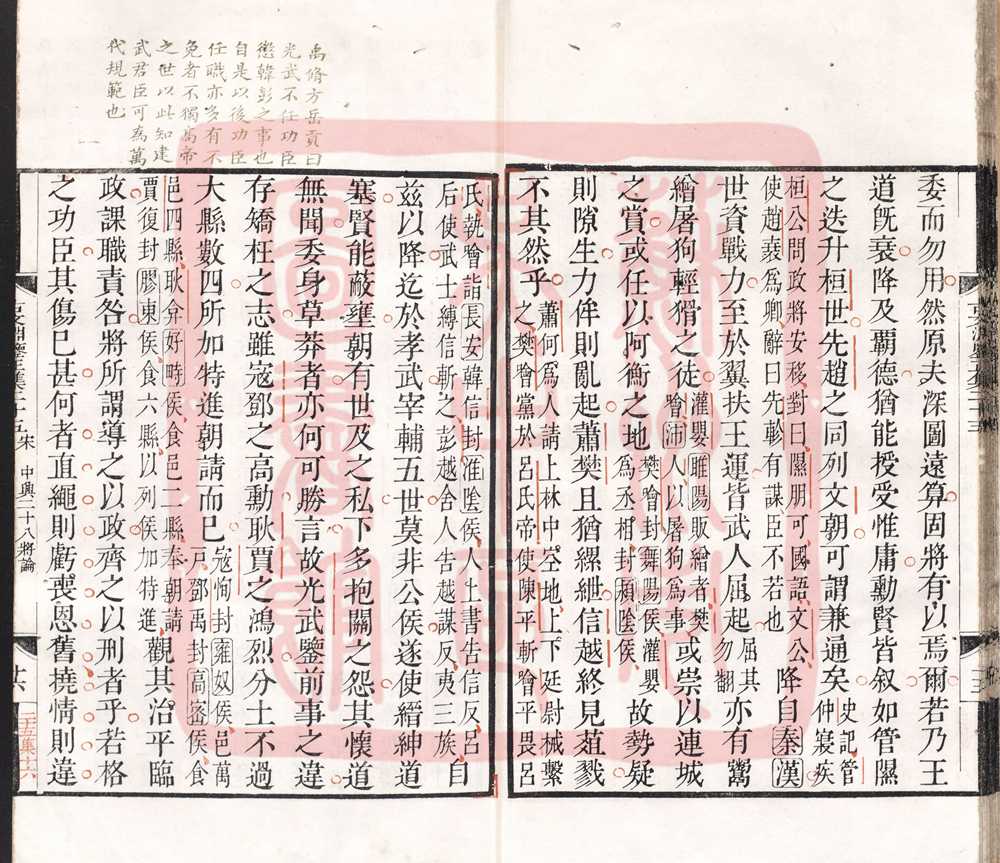 委而勿用然原夫深圖遠算固將有以焉爾若乃王
道旣衰降及霸德猶能授受惟庸勳賢皆叙如管隰
之迭升桓世先趙之同列文朝可謂兼通矣史記管
仲寢疾
桓公問政將安移對曰隰朋可國語文公
使趙衰爲卿辭曰先軫有謀臣不若也
降自秦漢
世資戰力至於翼扶王運皆武人屈起屈其
勿翻
亦有鬻
繒屠狗輕猾之徒灌嬰睢陽販繒者樊
噲沛人以屠狗爲事
或崇以連城
之賞或任以阿衡之地樊噲封舞陽侯灌嬰
爲丞相封潁陰侯
故勢疑
則隙生力侔則亂起蕭樊且猶縲紲信越終見葅戮
不其然乎蕭何爲人請上林中空地上下廷尉械繫
之樊噲黨於呂氏帝使陳平斬噲平畏呂
禹脩方岳貢曰
光武不任功臣
懲韓彭之事也
自是以後功臣
任職亦多有不
免者不獨高帝
之世以此知建
武君臣可為萬
代規範也
氏執噲詣長安韓信封淮陰侯人上書告信反呂
后使武士縛信斬之彭越舍人告越謀反夷三族
自
兹以降迄於孝武宰輔五世莫非公侯遂使縉紳道
塞賢能蔽壅朝有世及之私下多抱關之怨其懷道
無聞委身草莽者亦何可勝言故光武鑒前事之違
存矯枉之志雖寇鄧之高勳耿賈之鴻烈分土不過
大縣數四所加特進朝請而已寇恂封雍奴侯邑萬
戶鄧禹封高密侯食
邑四縣耿弇好畤侯食邑二縣奉朝請
賈復封膠東侯食六縣以列侯加特進
觀其治平臨
政課職責咎將所謂導之以政齊之以刑者乎若格
之功臣其傷已甚何者直繩則虧喪恩舊撓情則違
宋 中興二十八將論
二五集十六